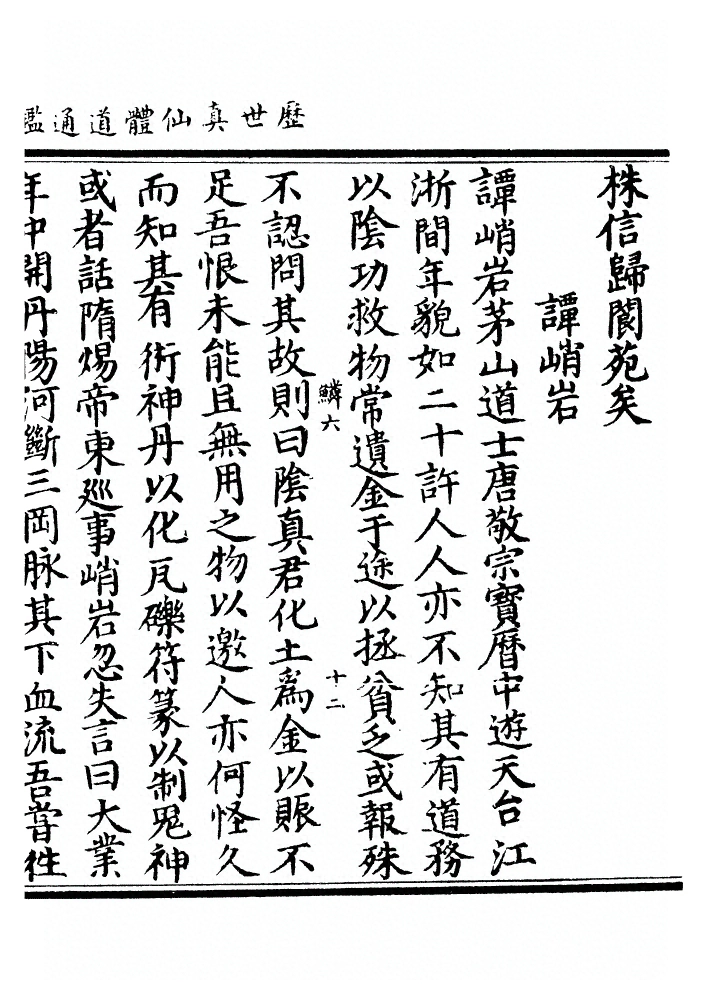 歷世真仙體道通鑑
株信歸閬苑矣
譚峭岩
譚峭岩茅山道士唐敬宗寶曆中遊天台江
淅間年貌如二十許人人亦不知其有道務
以陰功救物常遺金于途以拯貧乏或報殊
鱗六
十二
不認問其故則曰陰真君化土爲金以賑不
足吾恨未能且無用之物以邀人亦何怪久
而知其有術神丹以化瓦礫符篆以制鬼神
或者話隋煬帝東廵事峭岩忽失言曰大業
年中開丹陽河斷三岡脉其下血流吾嘗徃